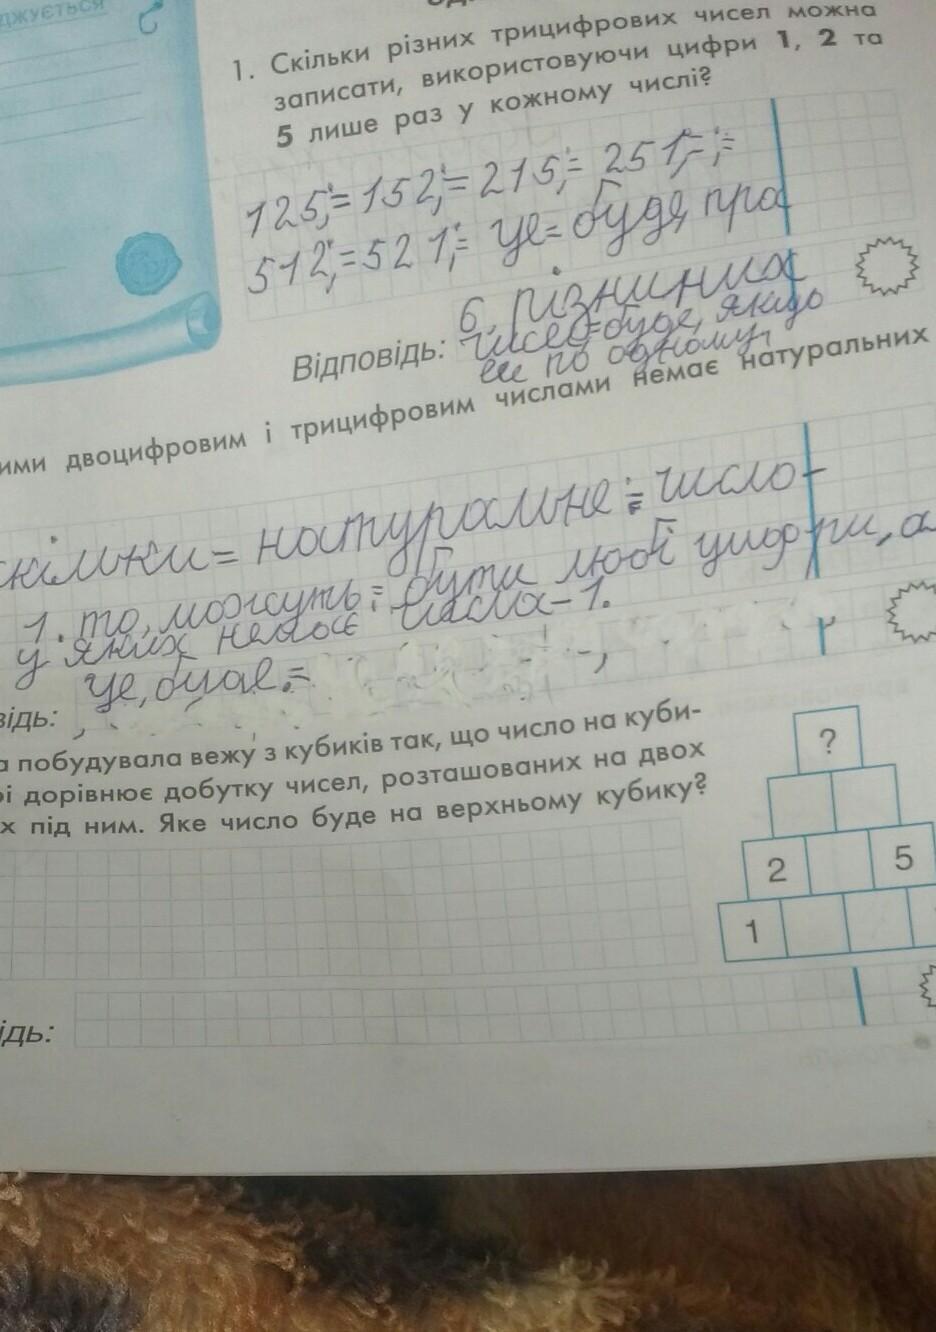 ДЖУЄТЬСЯ
1. Скільки різних трицифрових чисел можна
записати, використовуючи цифри 1, 2 та
5 лише раз у кожному числі?
125;= 152;= 215;= 251;=
512;= 521;= це= буде про
6. різних
Відповідь: чисел=буде, якщо
по одному
ими двоцифровим і трицифровим числами немає натуральних
натуральне = число
1. то, можуть бути любі цифри, а
у яких немає числа-1.
це, буде =
відь:
а побудувала вежу з кубиків так, що число на куби-
рі дорівнює добутку чисел, розташованих на двох
х під ним. Яке число буде на верхньому кубику?
?
2 5
1
ідь: